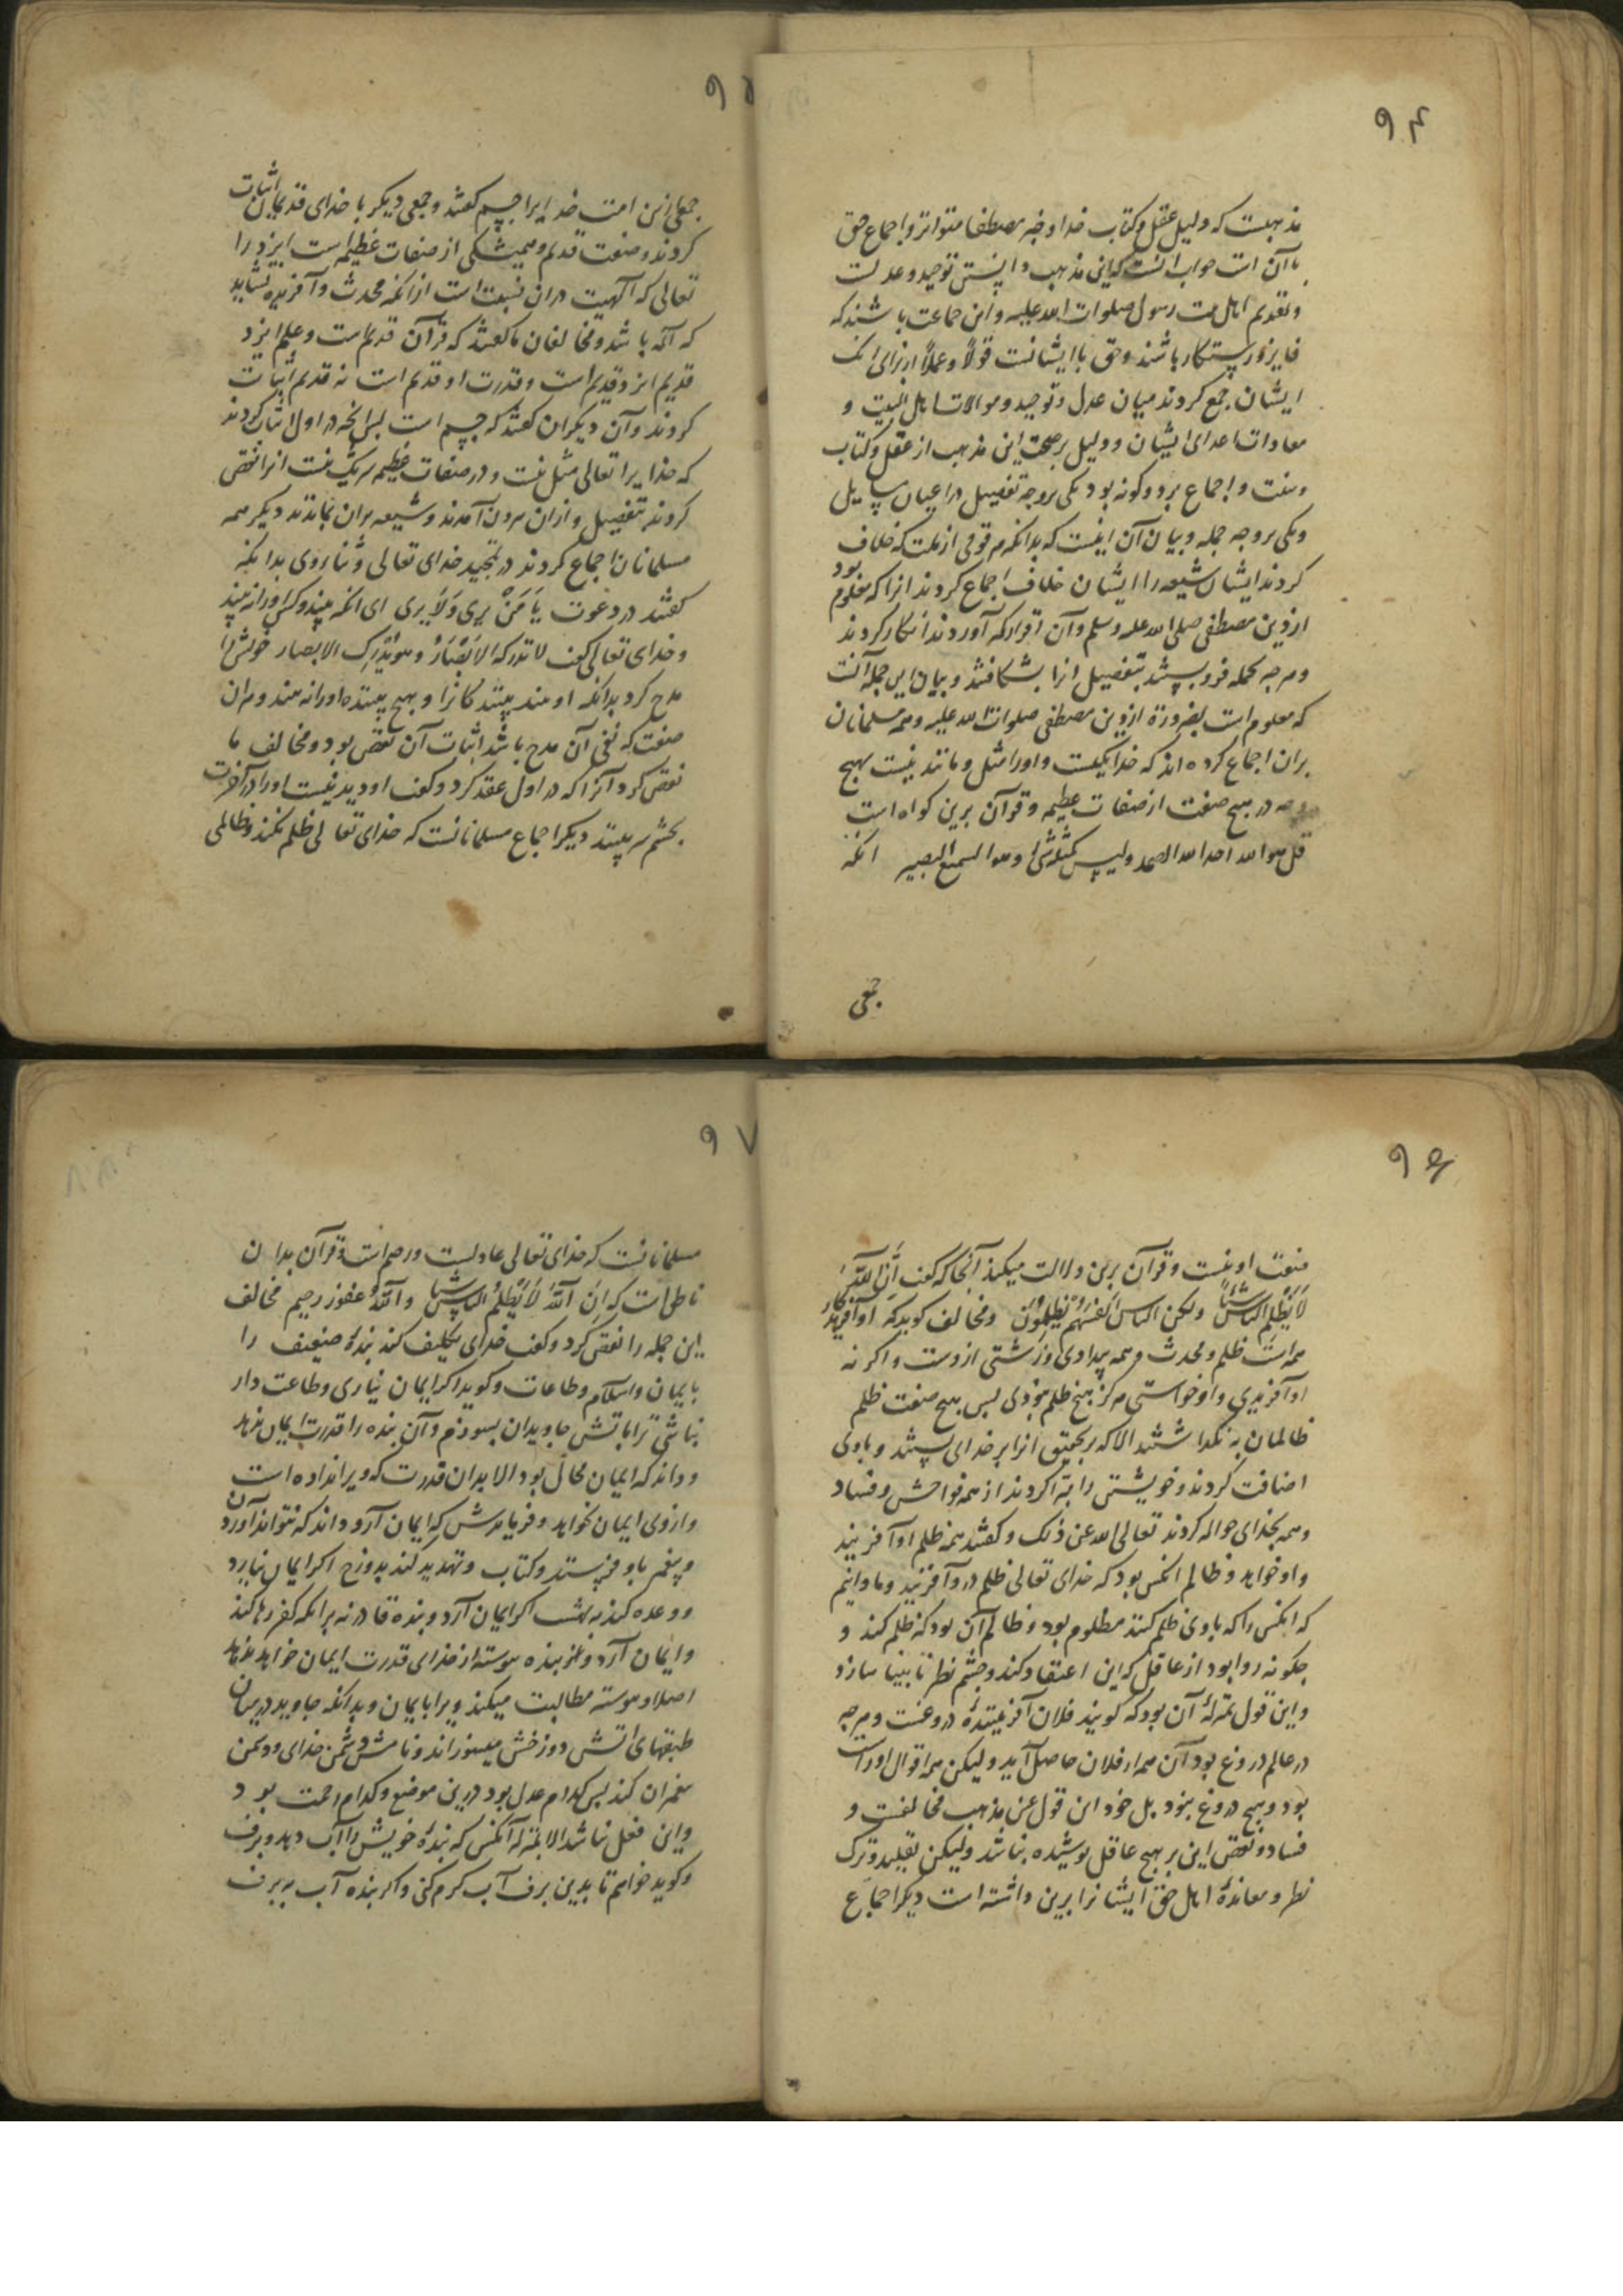 ۹۴
مذهبست که دلیل عقل و کتاب خدا و خبر مصطفا متواتر و اجماع حق
با آن است جواب آنست که این مذهب و توحید و عدلست
و تقدیم اهل بیت رسول صلوات الله علیه و این جماعت باشند که
فایز و رستکار باشند و حق با ایشانست قولاً و عملاً از برای انک
ایشان جمع کردند میان عدل و توحید و موالات اهل البیت و
معادات اعدای ایشان و دلیل بر صحت این مذهب از عقل و کتاب
و سنت و اجماع بر دو کونه بود یکی بر وجه تفصیل در اعیان مسایل
و یکی بر وجه جمله و بیان آن اینست که بدانکه هر قومی از ملت که خلاف
کردند ایشان شیعه را ایشان خلاف اجماع کردند انرا که معلوم بود
از دین مصطفی صلی الله علیه وسلم و آن اقرار که آوردند انکار کردند
و هر چه بجمله فرو بستند بتفصیل انرا بشکافتند و بیان این جمله آنست
که معلوم است بضرورة از دین مصطفی صلوات الله علیه و همه مسلمانان
بران اجماع کرده اند که خدا یکیست و اورا مثل و مانند نیست بهیچ
وجه در هیچ صفت از صفات عظیمه و قرآن برین کواه است
قل هو الله احد الله الصمد و لیس کمثله شئ و هو السمیع البصیر انکه
جمعی
۹۵
جمعی ازین امت خدایرا جسم کفتند و جمعی دیکر با خدای قدیمان اثبات
کردند و صفت قدیم و همیشکی از صفات عظیمه است ایزد را
تعالی که آلهیت دران نسبت است از انکه محدث و آفریده نشاید
که اله باشد و مخالفان ما کفتند که قرآن قدیم است و علم ایزد
قدیم ایزد قدیم است و قدرت او قدیم است نه قدیم اثبات
کردند و آن دیکران کفتند که جسم است پس انچه در اول اثبات کردند
که خدایرا تعالی مثل نیست و در صفات عظیمه شریک نیست انرا نقض
کردند بتفصیل و ازان بیرون آمدند و شیعه بران بماندند دیکر همه
مسلمانان اجماع کردند در تمجید خدای تعالی و ثنا بر وی بدانکه
کفتند در دعوت یَا مَنْ یری وَلاَ یری ای انکه بیند و کس اورا نه بیند
و خدای تعالی کفت لا تدرکه الاَبْصَارُ و هو یُدْرِک الابصار خویش را
مدح کرد بدانکه او بیند بینندکانرا و هیچ بیننده اورا نه بیند و هر آن
صفت که نفی آن مدح باشد اثبات آن نقض بود و مخالف ما
نقض کرد آنرا که در اول عقد کرد و کفت او دیدنیست اورا در آخرت
بچشم سر بینند دیکر اجماع مسلمانانست که خدای تعالی ظلم نکند و ظالمی
۹۶
صفت او نیست و قرآن برین دلالت میکند آنجا که کفت اِنَّ اللّٰهَ
لاَ یَظْلِمُ الناسَ شَیْئاً ولکن الناس اَنفُسَهُمْ یَظلِمُوْنَ و مخالف کوید که او آفریدکار
همه است ظلم و محدث و همه بیدادی و زشتی ازوست و اکر نه
او آفریدی و او خواستی هرکز هیچ ظلم نبودی پس هیچ صفت ظلم
ظالمان به نکذاشتند الا که بحقیقت انرا بر خدای بستند و باوی
اضافت کردند و خویشتن را تبرا کردند از همه فواحش و فساد
و همه بخدای حواله کردند تعالی الله عن ذلک و کفتند همه ظلم او آفریند
و او خواهد و ظالم انکس بود که خدای تعالی ظلم درو آفریند و ما دانیم
که انکس را که با وی ظلم کنند مظلوم بود و ظالم آن بود که ظلم کند و
چکونه روا بود از عاقل که این اعتقاد کند و چشم نظر نابینا سازد
و این قول بمنزلهٔ آن بود که کویند فلان آفرینندهٔ دروغست و هرچه
در عالم دروغ بود آن همه از فلان حاصل آید و لیکن همه اقوال او راست
بود و هیچ دروغ نبود بل خود این قول عین مذهب مخالفست و
فساد و نقض این بر هیچ عاقل پوشیده نباشد و لیکن تقلید و ترک
نظر و معاندهٔ اهل حق ایشانرا برین داشته است دیکر اجماع
۹۷
مسلمانانست که خدای تعالی عادلست و رحیم است و قرآن بدان
ناطق است که اِنَ اللّٰهَ لاَ یَظْلِمُ الناسَ شَیْئاً و اللّٰهُ غفور رحیم مخالف
این جمله را نقض کرد و کفت خدای تکلیف کند بندهٔ ضعیف را
بایمان و اسلام و طاعات و کوید اکر ایمان نیاری و طاعت دار
نباشی ترا باتش جاویدان بسوزم و آن بنده را قدرت ایمان ندهد
و داند که ایمان محال بود الا بدان قدرت که ویرا نداده است
و از وی ایمان بخواهد و فرمایدش که ایمان آر و داند که نتواند آوردن
و پیغمبر باو فرستد و کتاب و تهدید کند بدوزخ اکر ایمان نیاورد
و وعده کند به بهشت اکر ایمان آرد و بنده قادر نه برانکه کفر رها کند
و ایمان آرد و هر بنده پیوسته از خدای قدرت ایمان خواهد ندهد
اصلا و پیوسته مطالبت میکند ویرا بایمان و بدانکه جاوید در میان
طبقهای اتش دوزخش میسوزاند و نامش دشمن خدای و دشمن
پیغمبران کند پس کدام عدل بود درین موضع و کدام رحمت بود
و این فعل نباشد الا بمنزلهٔ آنکس که بندهٔ خویش را آب دهد و برف
و کوید خواهم تا بدین برف آب کرم کنی و اکر بنده آب به برف